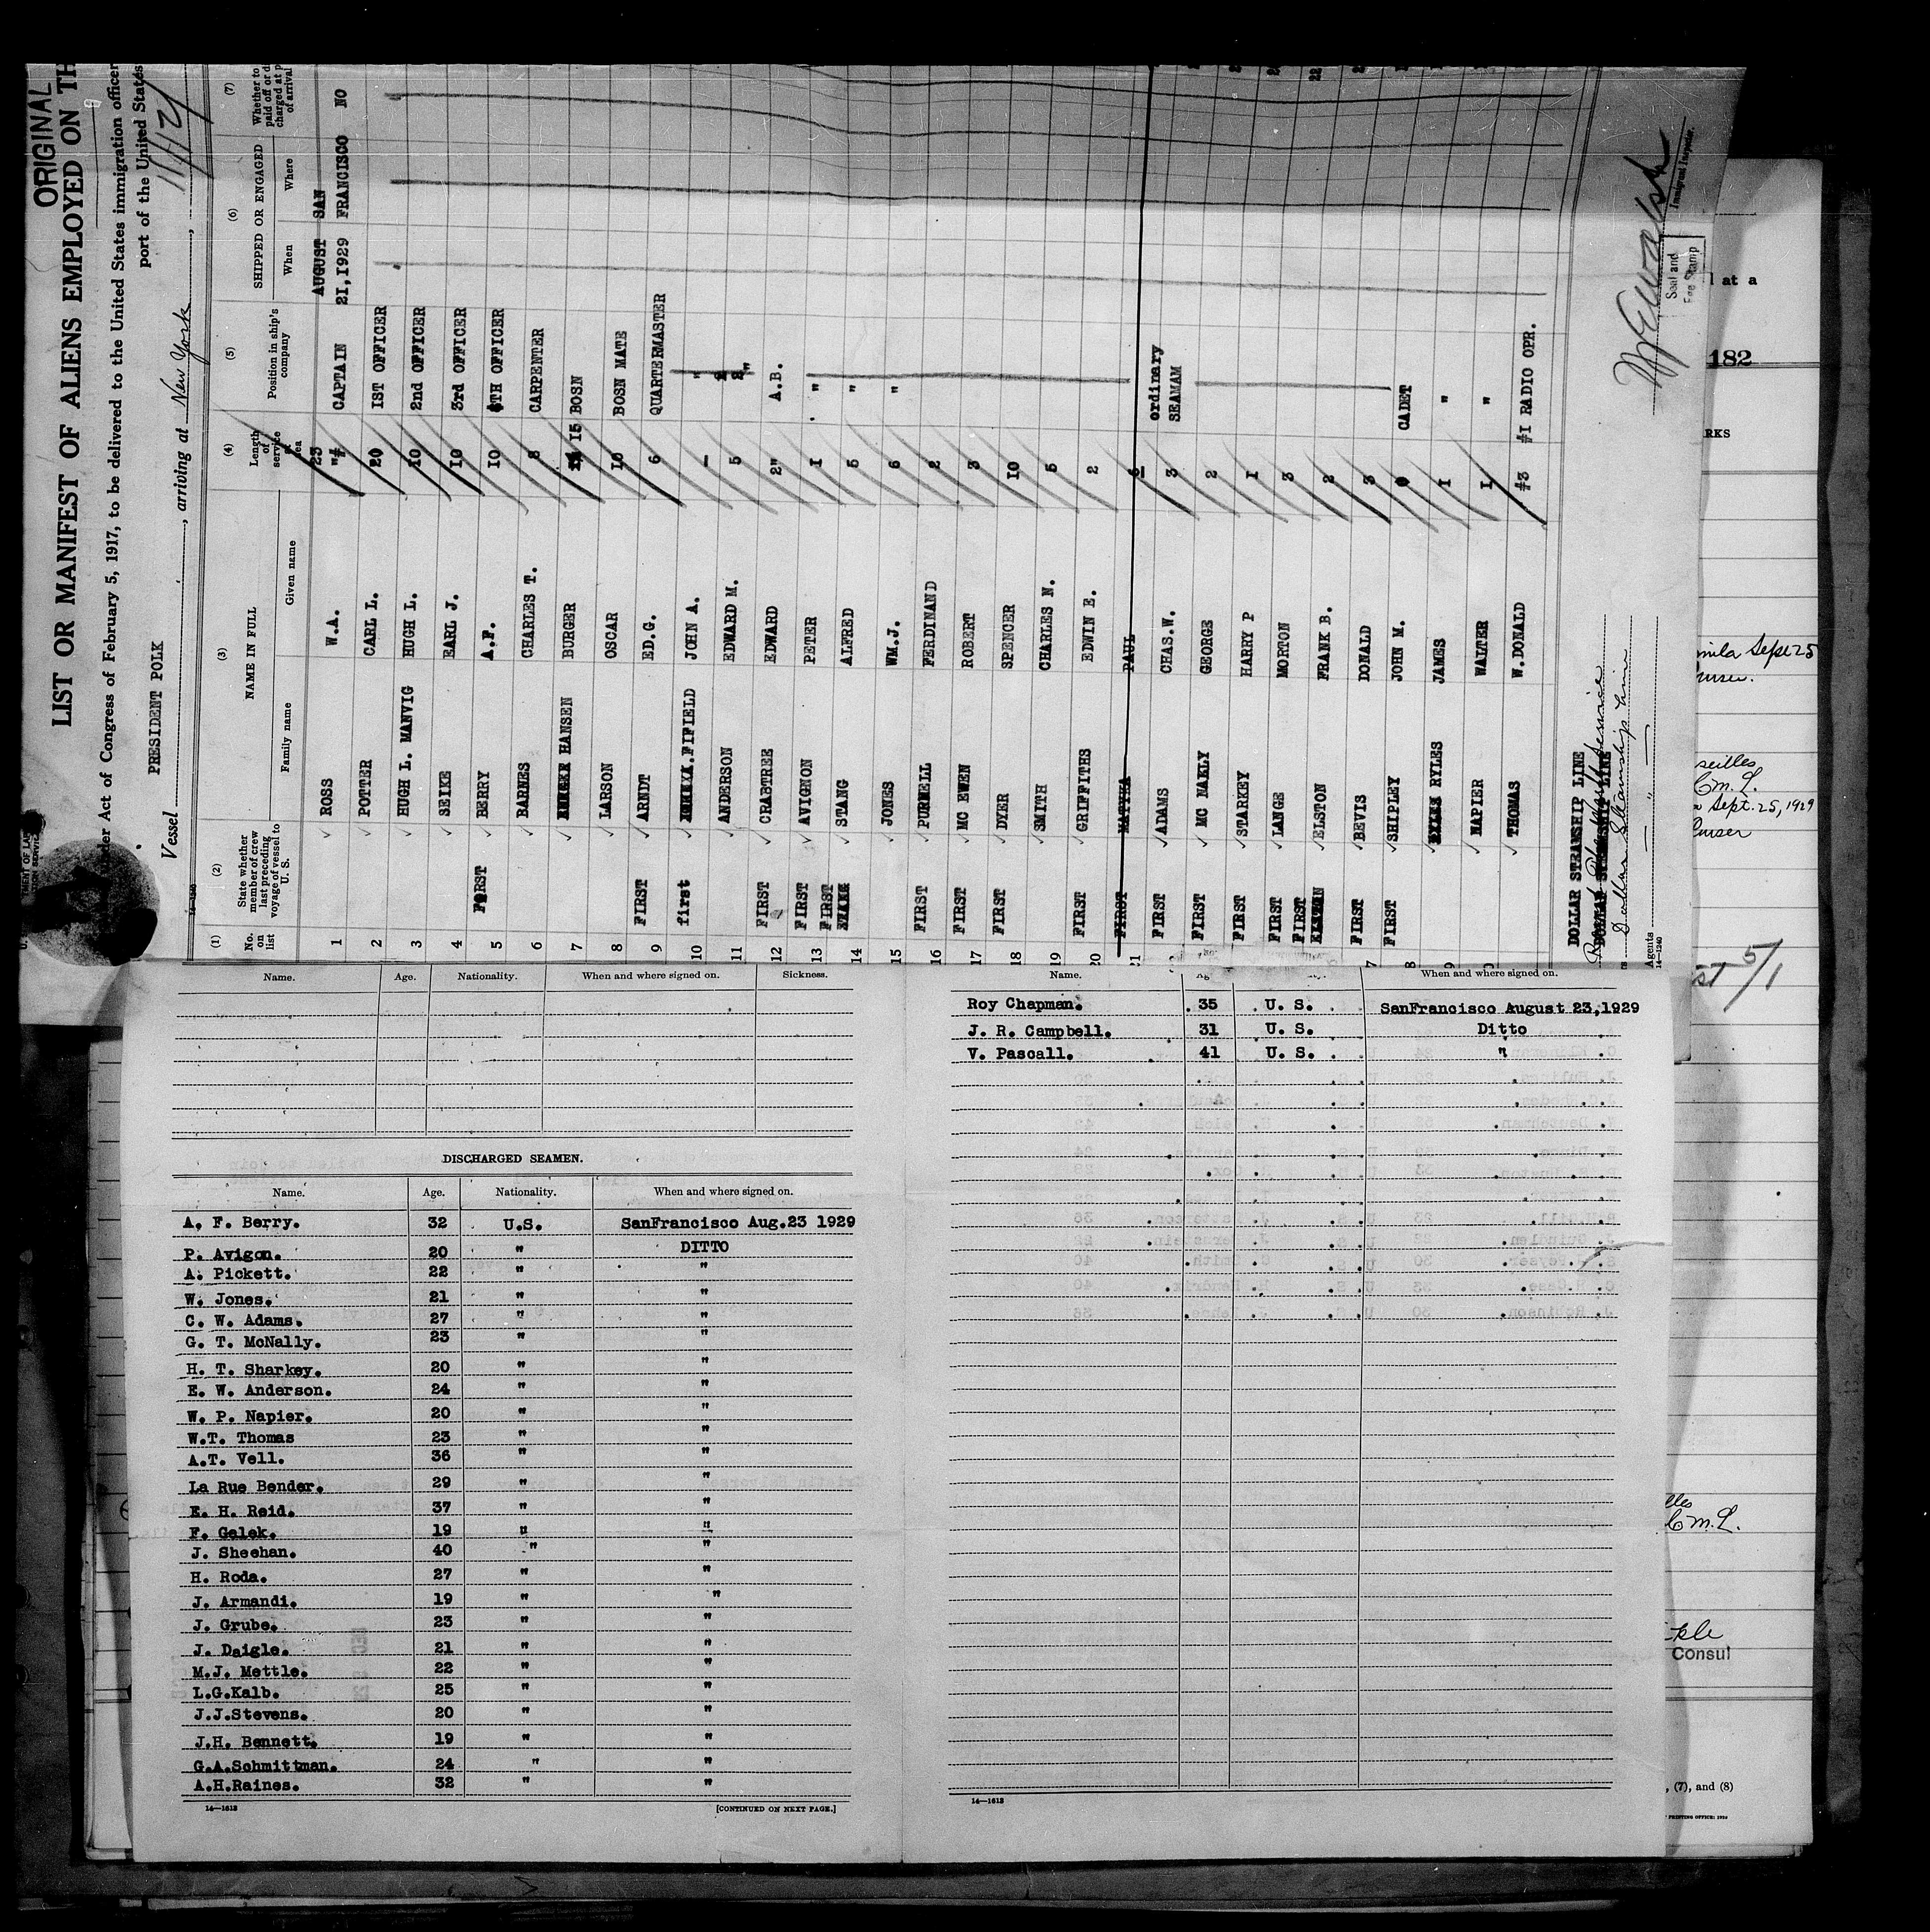 ORIGINAL
LIST OR MANIFEST OF ALIENS EMPLOYED ON TH
nder Act of Congress of February 5, 1917, to be delivered to the United States immigration officer
port of the United States
Vessel PRESIDENT POLK, arriving at New York,
(1) (2) (3) (4) (5) (6) (7)
No. on list
State whether member of crew last preceding voyage of vessel to U. S.
NAME IN FULL
Family name Given name
Length of service at sea
Position in ship's company
SHIPPED OR ENGAGED
When Where
Whether to paid off or d charged at p of arrival
1 ROSS W.A. 23 CAPTAIN AUGUST 21,1929 SAN FRANCISCO NO
2 POTTER CARL L. 20 IST OFFICER
3 HUGH L. MANVIG HUGH L. 10 2nd OFFICER
4 SEIKE EARL J. 10 3rd OFFICER
5 FORST BERRY A.F. 10 4TH OFFICER
6 BARNES CHARLES T. 8 CARPENTER
7 HANSEN BURGER 15 BOSN
8 LARSON OSCAR 10 BOSN MATE
9 FIRST ARNDT ED.G. 6 QUARTERMASTER
10 first FIFIELD JOHN A. "
11 ANDERSON EDWARD M. 5
12 FIRST CRABTREE EDWARD 2" A.B.
13 FIRST AVIGNON PETER I "
14 FIRST STANG ALFRED 5 "
15 JONES WM.J. 6 "
16 FIRST PURNELL FERDINAND 2
17 FIRST MC EWEN ROBERT 3
18 FIRST DYER SPENCER IO
19 SMITH CHARLES N. 5
20 FIRST GRIFFITHS EDWIN E. 2
21 FIRST MATYKA PAUL
FIRST ADAMS CHAS.W. 3 ordinary SEAMAM
FIRST MC NAKLY GEORGE 2
FIRST STARKEY HARRY P I
FIRST LANGE MORTON 3
FIRST ELSTON FRANK B. 2
7 FIRST BEVIS DONALD 3
8 FIRST SHIPLEY JOHN M. CADET
9 RYLES JAMES I "
NAPIER WALTER I "
THOMAS W.DONALD #3 #I RADIO OPR.
DOLLAR STEAMSHIP LINE
Dollar Steamship Line
Agents
14—1240
Immigrant Inspector.
Seal and
Fee Stamp
l at a
182
RKS
nila Sept 25
Sept. 25, 1929
C. M. L.
5/1
Consul
, (7), and (8)
Name. Age. Nationality. When and where signed on. Sickness.
DISCHARGED SEAMEN.
Name. Age. Nationality. When and where signed on.
A. F. Berry. 32 U.S. SanFrancisco Aug.23 1929
P. Avigon. 20 " DITTO
A. Pickett. 22 " "
W. Jones. 21 " "
C. W. Adams. 27 " "
G. T. McNally. 23 " "
H. T. Sharkey. 20 " "
E. W. Anderson. 24 " "
W. P. Napier. 20 " "
W.T. Thomas 23 " "
A.T. Vell. 36 " "
La Rue Bender. 29 " "
E. H. Reid. 37 " "
F. Gelek. 19 " "
J. Sheehan. 40 " "
H. Roda. 27 " "
J. Armandi. 19 " "
J. Grube. 23 " "
J. Daigle. 21 " "
M.J. Mettle. 22 " "
L.G.Kalb. 25 " "
J.J.Stevens. 20 " "
J.H. Bennett. 19 " "
G.A.Schmittman. 24 " "
A.H.Raines. 32 " "
14—1613 [CONTINUED ON NEXT PAGE.]
Name. When and where signed on.
Roy Chapman. 35 U. S. SanFrancisco August 23,1929
J. R. Campbell. 31 U. S. Ditto
V. Pascall. 41 U. S. "
14—1613